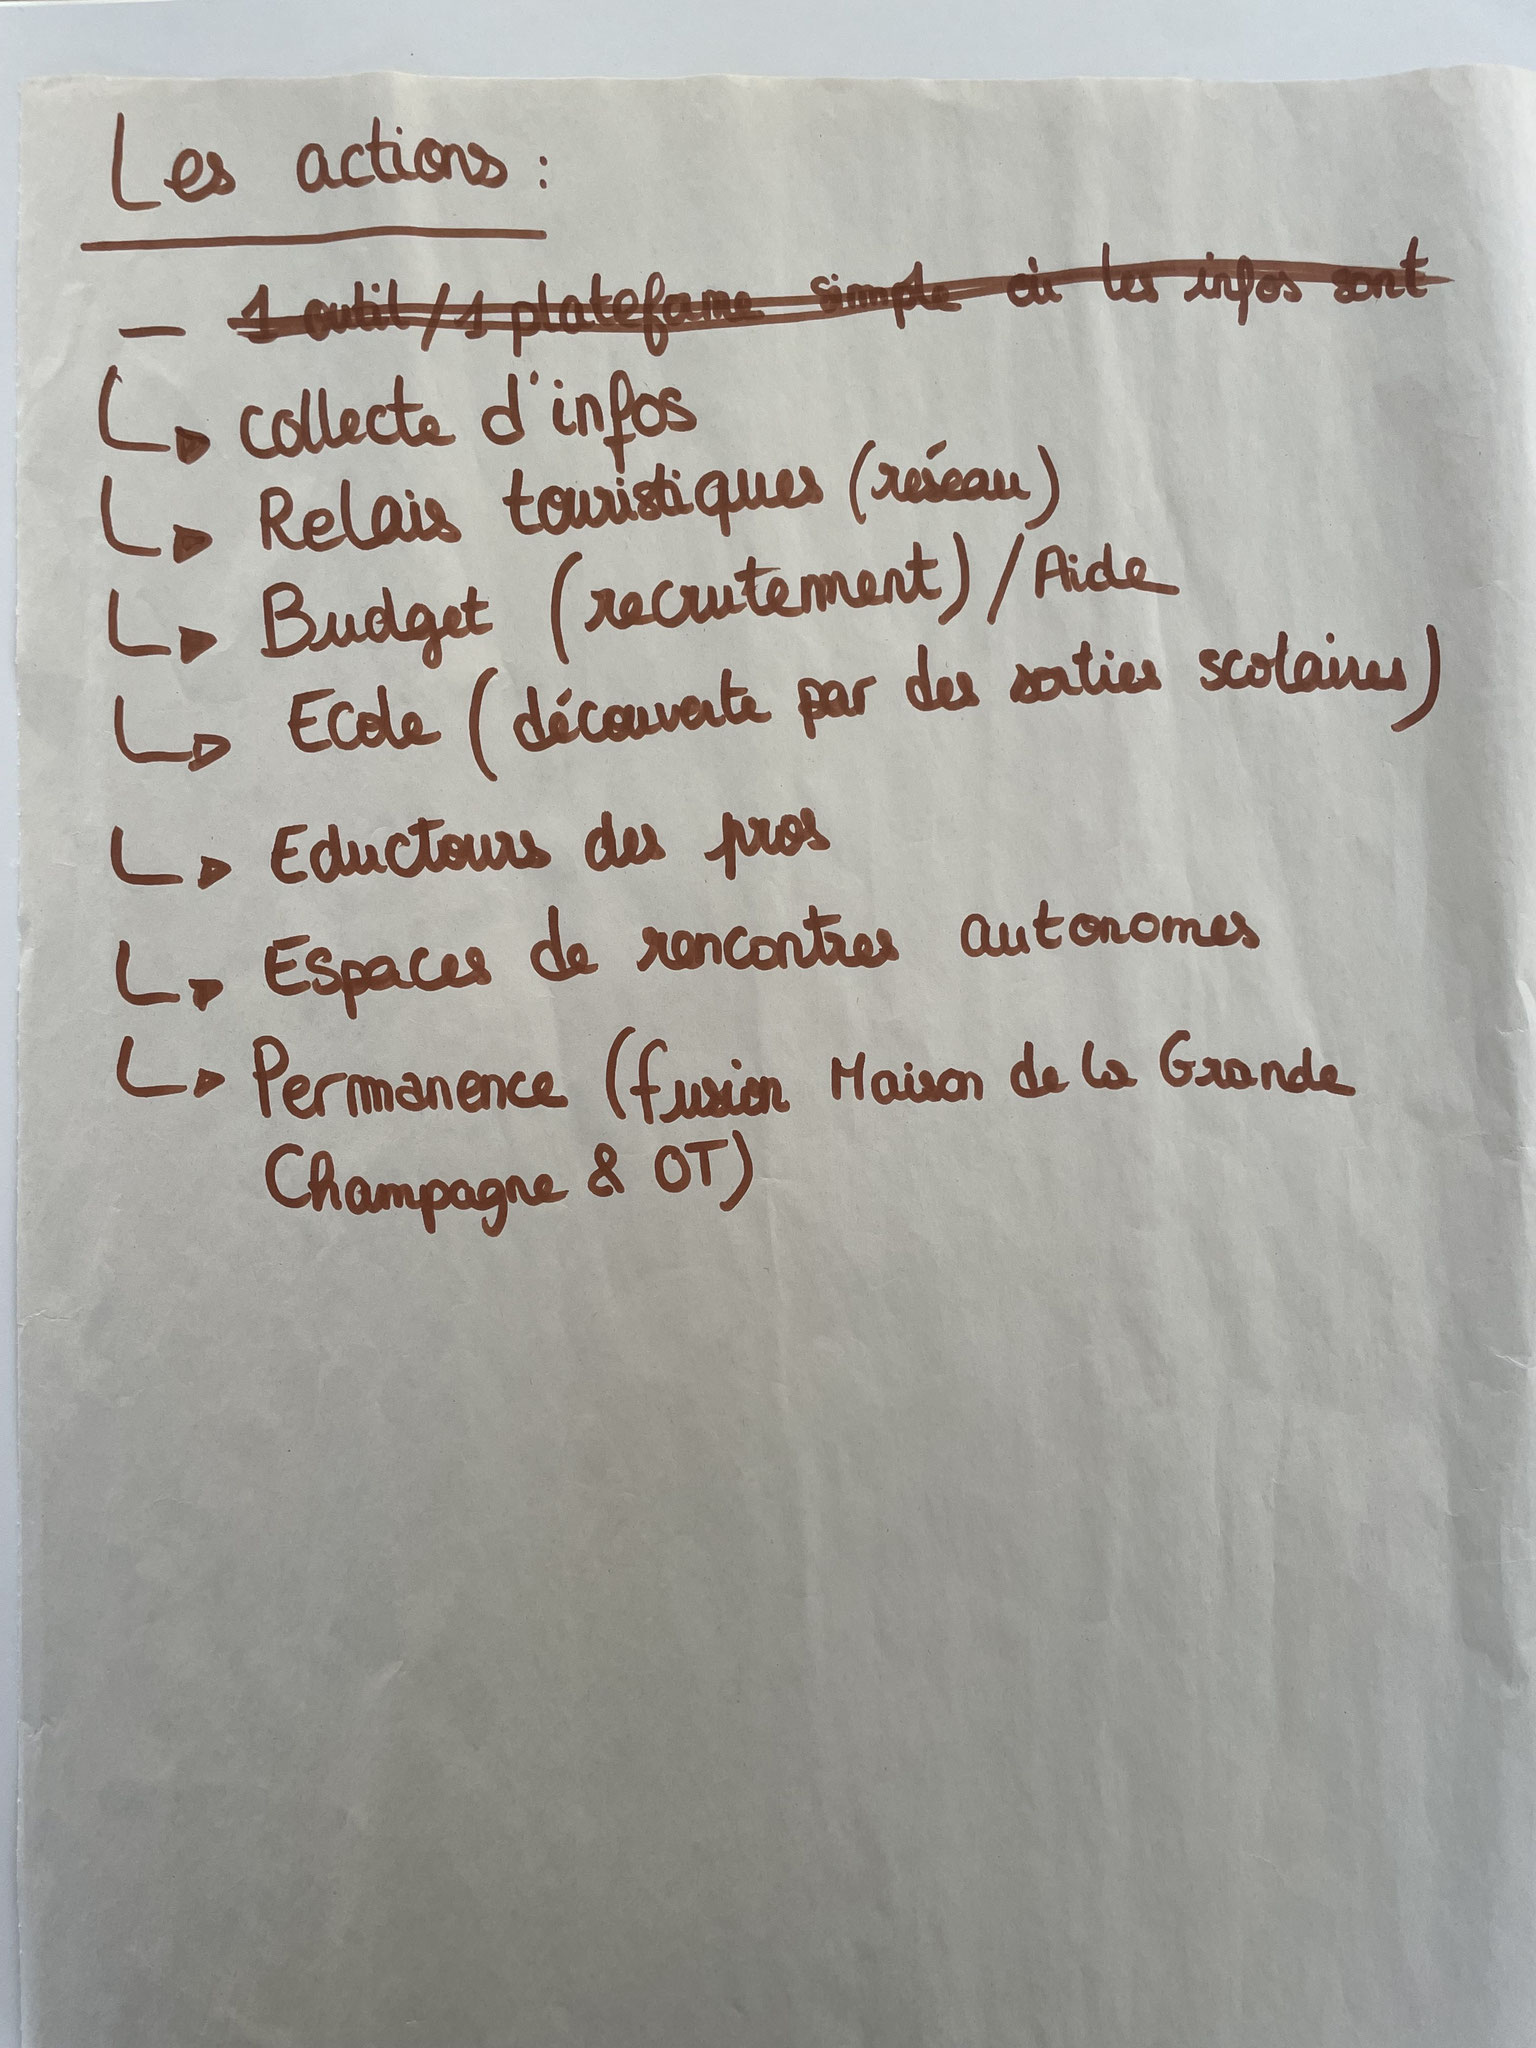 Les actions :
- 1 outil / 1 plateforme simple où les infos sont
collecte d'infos
Relais touristiques (réseau)
Budget (recrutement) / Aide
Ecole (découverte par des sorties scolaires)
Eductours des pros
Espaces de rencontres autonomes
Permanence (fusion Maison de la Grande
Champagne & OT)